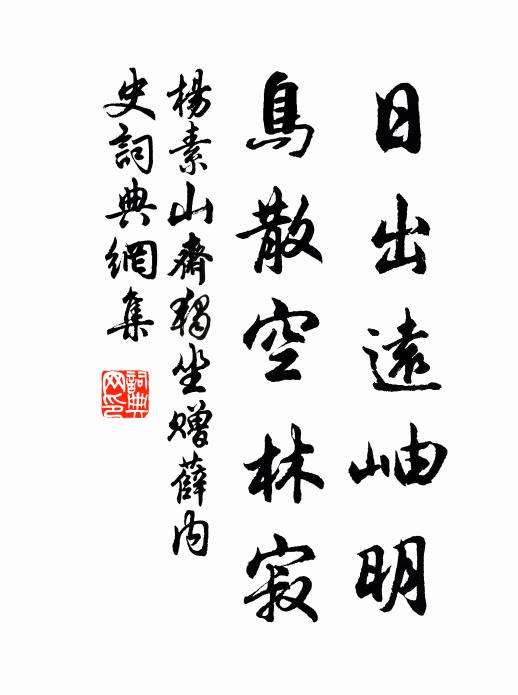 日出遠岫明
鳥散空林寂
楊素山齋獨坐贈薛內
史詞典網集
詞典
网印